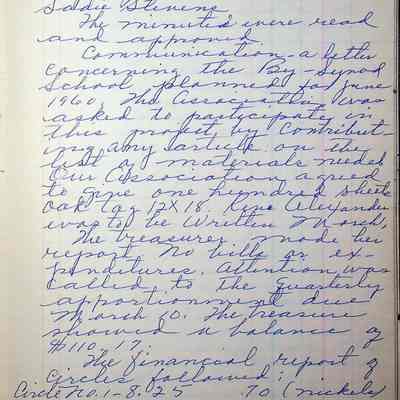 Sadie Stevens
The minutes were read
and approved
Communication - a letter
concerning the By-Synod
School planned for June
1960. The Association was
asked to participate in
this project by Contribut-
ing any article on the
list of materials needed
Our Association agreed
to give one hundred sheets
oak tag 12X18.
was to be Written March,
The treasurer made her
report. No bills or ex-
penditures. Attention was
called to the quarterly
apportionment due
March 10. The treasure
showed a balance of
$110.17.
The financial report of
Circles followed:
Circle No. 1 - 8.25 .70 (nickels